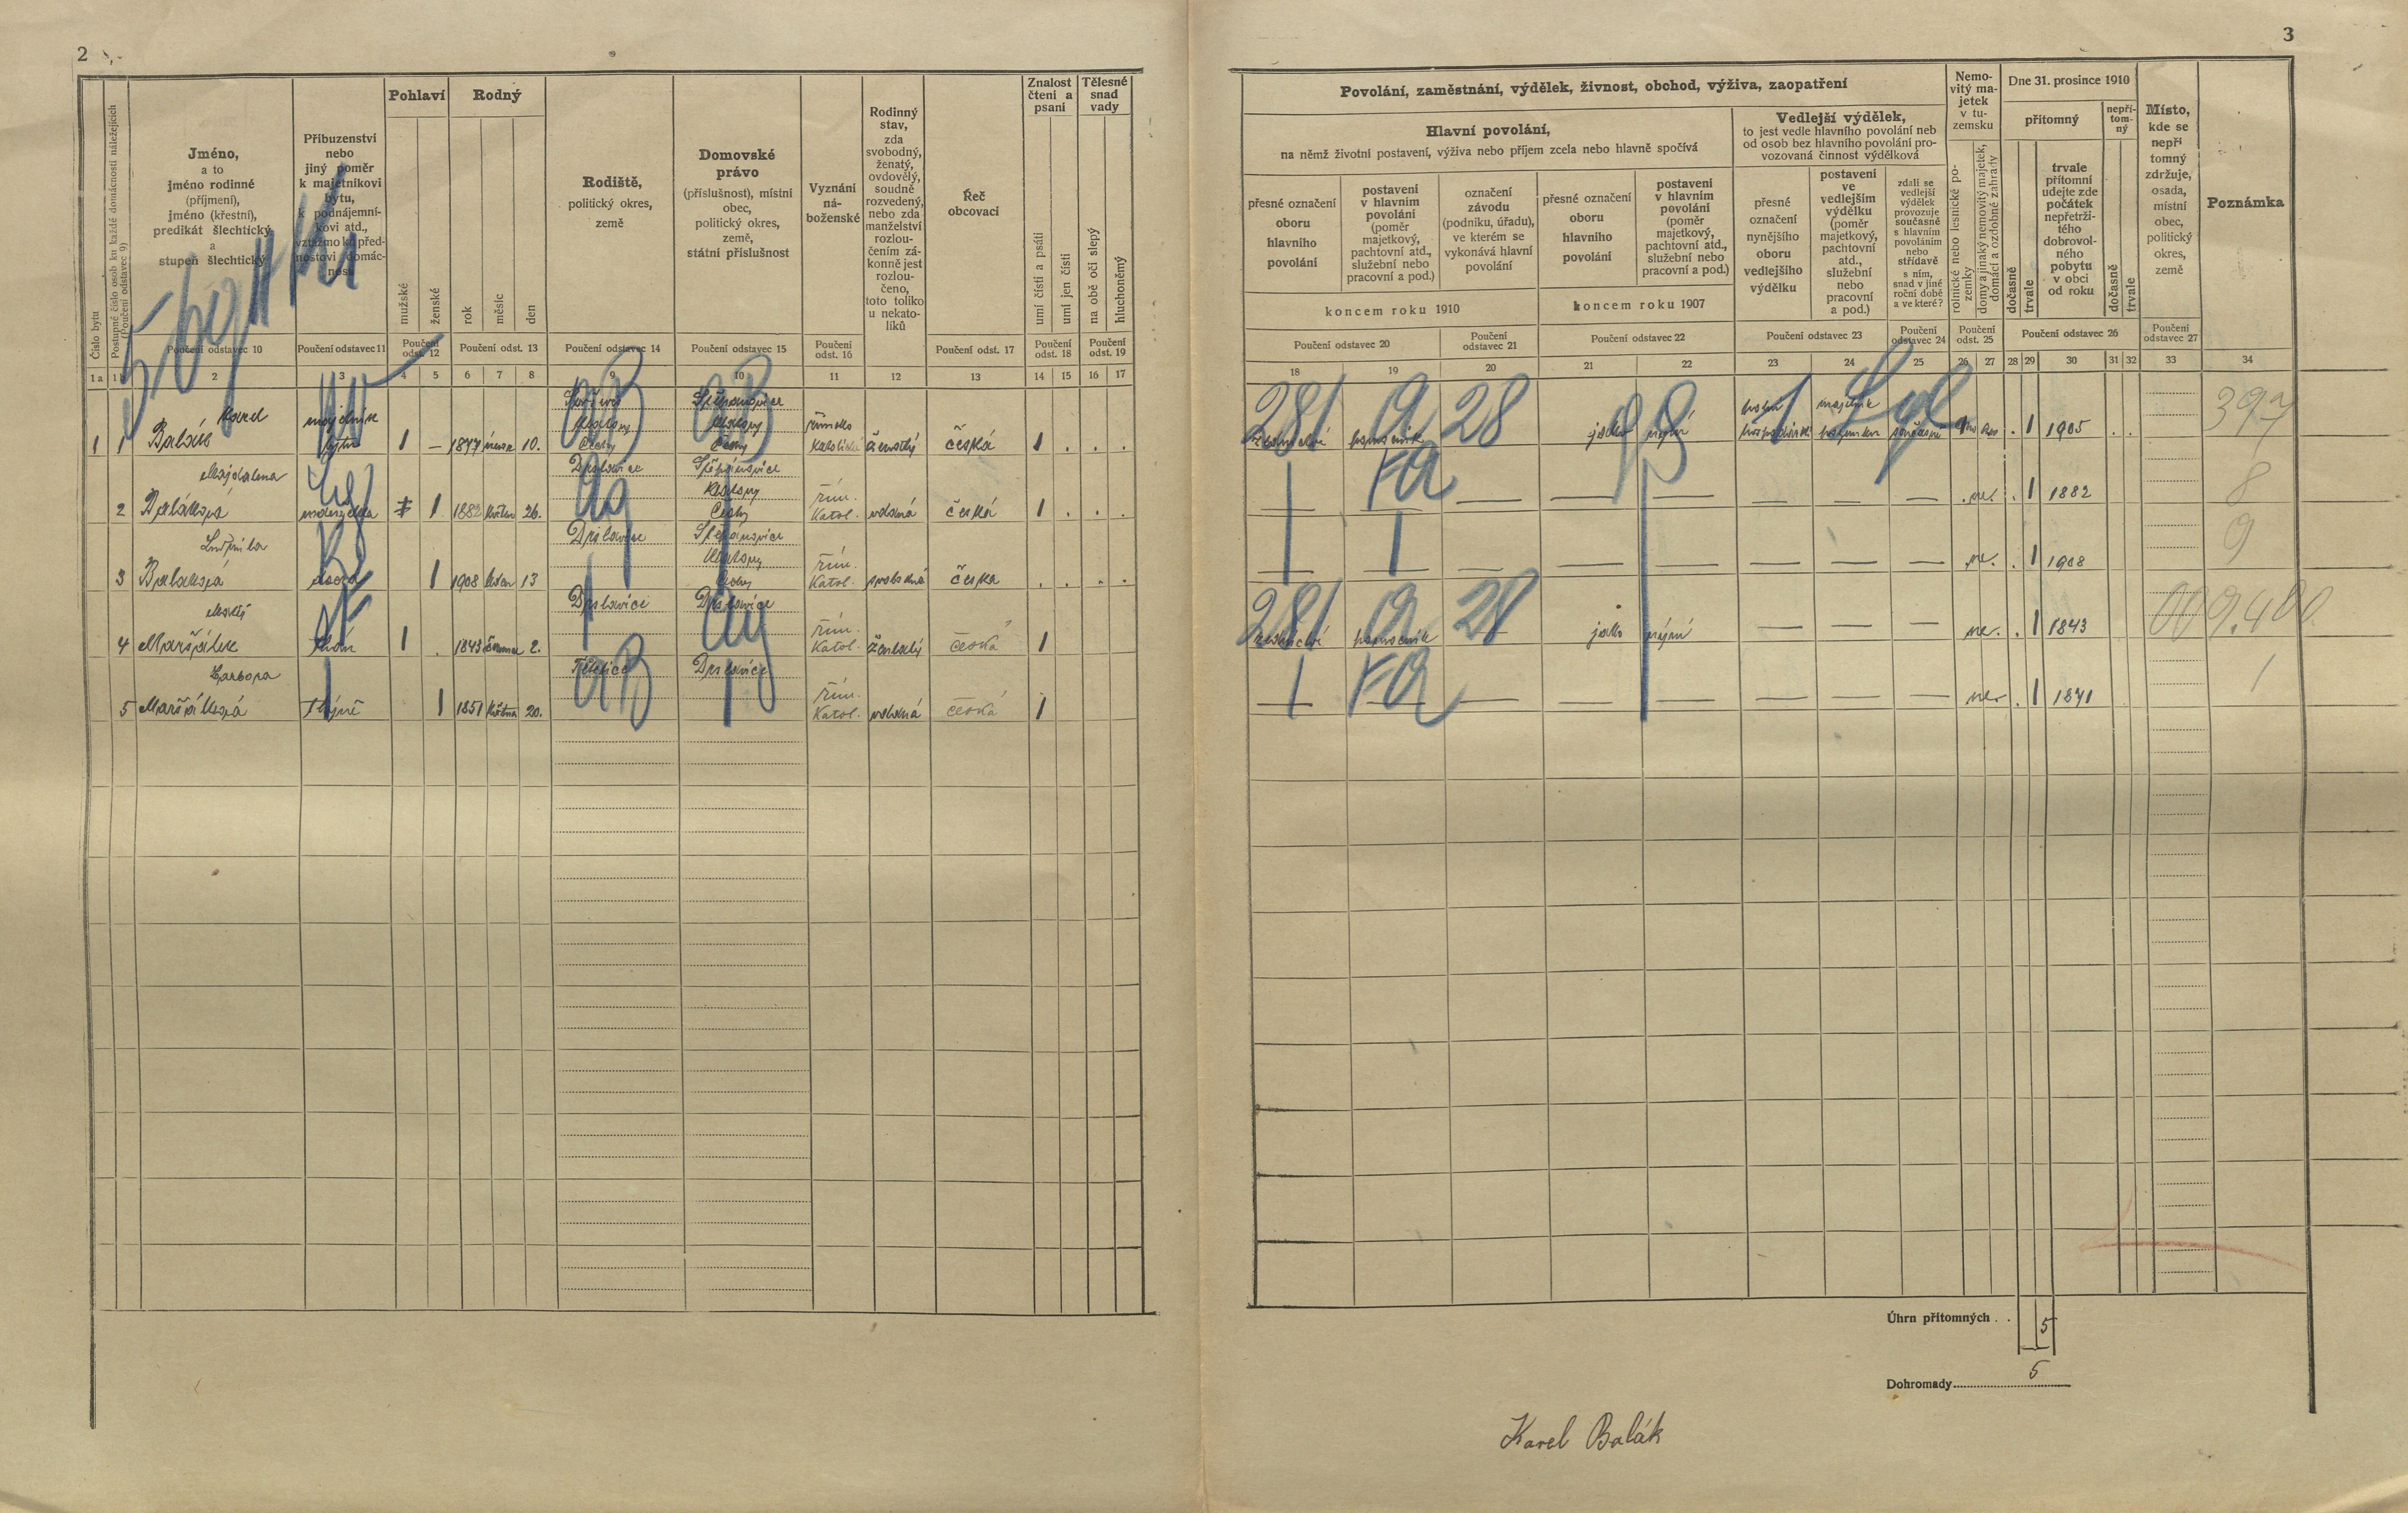 2
3
Číslo bytu
Postupné číslo osob ku každé domácnosti náležejících
(Poučení odstavec 9)
Jméno,
a to
jméno rodinné
(příjmení),
jméno (křestní),
predikát šlechtický
a
stupeň šlechtický
Příbuzenství
nebo
jiný poměr
k majetníkovi
bytu,
k podnájemní-
kovi atd.,
vztažmo ku před-
nostovi domác-
nosti
Pohlaví
mužské
ženské
Rodný
rok
měsíc
den
Rodiště,
politický okres,
země
Domovské
právo
(příslušnost), místní
obec,
politický okres,
země,
státní příslušnost
Vyznání
ná-
boženské
Rodinný
stav,
zda
svobodný,
ženatý,
ovdovělý,
soudně
rozvedený,
nebo zda
manželství
rozlou-
čením zá-
konně jest
rozlou-
čeno,
toto toliko
u nekato-
líků
Řeč
obcovací
Znalost
čtení a
psaní
umí čísti a psáti
umí jen čísti
Tělesné
snad
vady
na obě oči slepý
hluchoněmý
Poučení odstavec 10
Poučení odstavec 11
Poučení
odst. 12
Poučení odst. 13
Poučení odstavec 14
Poučení odstavec 15
Poučení
odst. 16
Poučení odst. 17
Poučení
odst. 18
Poučení
odst. 19
1a 1 2 3 4 5 6 7 8 9 10 11 12 13 14 15 16 17
Povolání, zaměstnání, výdělek, živnost, obchod, výživa, zaopatření
Hlavní povolání,
na němž životní postavení, výživa nebo příjem zcela nebo hlavně spočívá
přesné označení
oboru
hlavního
povolání
postavení
v hlavním
povolání
(poměr
majetkový,
pachtovní atd.,
služební nebo
pracovní a pod.)
označení
závodu
(podniku, úřadu),
ve kterém se
vykonává hlavní
povolání
koncem roku 1910
přesné označení
oboru
hlavního
povolání
postavení
v hlavním
povolání
(poměr
majetkový,
pachtovní atd.,
služební nebo
pracovní a pod.)
koncem roku 1907
Vedlejší výdělek,
to jest vedle hlavního povolání neb
od osob bez hlavního povolání pro-
vozovaná činnost výdělková
přesné
označení
nynějšího
oboru
vedlejšího
výdělku
postavení
ve
vedlejším
výdělku
(poměr
majetkový,
pachtovní
atd.,
služební
nebo
pracovní
a pod.)
zdali se
vedlejší
výdělek
provozuje
současně
s hlavním
povoláním
nebo
střídavě
s ním,
snad v jiné
roční době
a ve které?
Nemo-
vitý ma-
jetek
v tu-
zemsku
rolnické nebo lesnické po-
zemky
domy a jinaký nemovitý majetek,
domácí a ozdobné zahrady
Dne 31. prosince 1910
přítomný
dočasně
trvale
trvale
přítomní
udejte zde
počátek
nepřetrži-
tého
dobrovol-
ného
pobytu
v obci
od roku
nepří-
tom-
ný
dočasně
trvale
Místo,
kde se
nepří
tomný
zdržuje,
osada,
místní
obec,
politický
okres,
země
Poznámka
Poučení odstavec 20
Poučení
odstavec 21
Poučení odstavec 22
Poučení odstavec 23
Poučení
odstavec 24
Poučení
odst. 25
Poučení odstavec 26
Poučení
odstavec 27
18 19 20 21 22 23 24 25 26 27 28 29 30 31 32 33 34
Karel Štěpánovice
Klatovy
1 1 Balák majetník bytu 1 – 1877 10. Čechy Čechy římsko katolické ženatý česká 1
281 a 28 jako nyní současně 1 1905 397
Majdalena Drslavice Štěpánovice
Klatovy
2 Baláková manželka 1 1882 květen 26. Čechy řím. katol. vdaná česká 1
— — — — — — ne. 1 1882 8
Ludmila Drslavice Štěpánovice
Klatovy
3 Balaková dcera 1 1908 13 Čechy řím. katol. svobodná česka
— — — — — — ne. 1 1908 9
Matěj Drslavice Drslavice
4 Maršálek tchán 1 1843 2. řím. katol. ženatý česká 1
281 a 28 jako nyní — — — ne. 1 1843
Barbora Drslavice
5 Maršálková tchýně 1 1851 května 20. řím. katol. vdaná česká 1
— — — — — — ne. 1 1871 1
Úhrn přítomných . . 5
Dohromady 5
Karel Balák